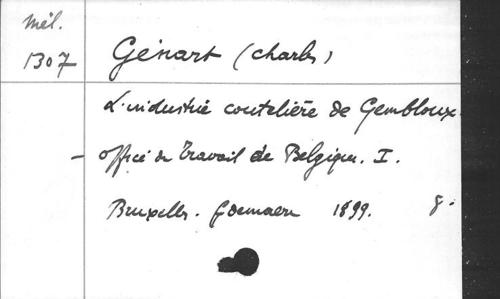 Mél.
1307
Génart (Charles)
L'industrie coutelière de Gembloux.
- Office du Travail de Belgique. I.
Bruxelles. Goemaere 1899. 8.